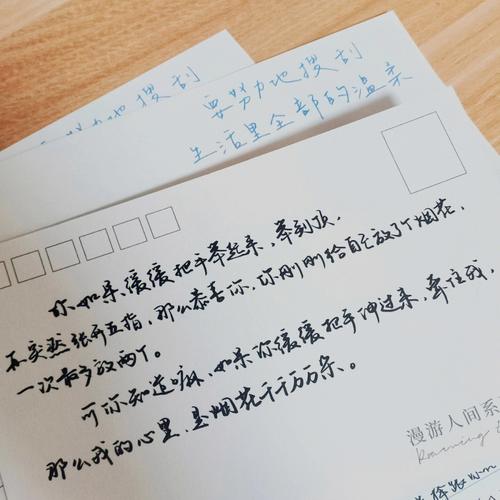 要努力地搜刮
要努力地搜刮
生活里全部的温柔
你如果,缓缓把手举起来,举到顶,
再突然张开五指,那么恭喜你,你刚刚给自己放了个烟花,
一次最多放两个。
可你知道嘛,如果你缓缓把手伸过来,牵住我,
那么我的心里,是烟花千千万万朵。
漫游人间系
Roaming